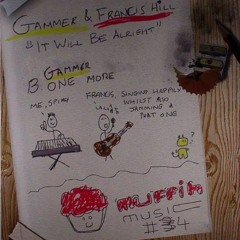 GAMMER & FRANCIS HILL
"IT WILL BE ALRIGHT"
GAMMER
B ONE MORE
ME,
FRANCIS, SINGING HAPPILY
WHILST ALSO
JAMMING A
PHAT ONE
LALA
?
MUFFIN
MUSIC
#34